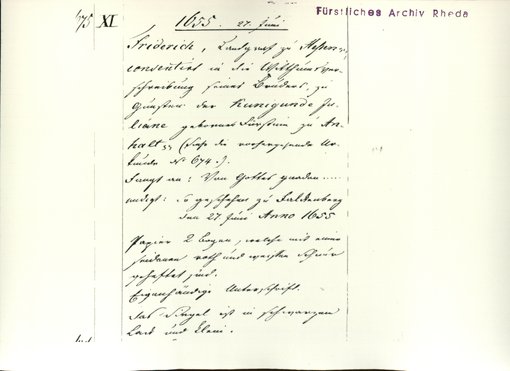 Fürstliches Archiv Rheda
675 XI 1655. 27. Juni
Friderich, Landgraf zu Hessen
consentirt in die Witthumsver-
schreibung seines Bruders, zu
Gunsten der Kunigunde Ju-
liane geborner Fürstin zu An-
halt (Siehe die vorhergehende Ur-
kunde No 674.).
Fangt an: Von Gottes gnaden .....
endigt: so geschehen zu Falkenberg
den 27. Juni Anno 1655
Papier 2 bogen, welche mit einer
seidenen roth und weissen Schnur
geheftet sind.
Eigenhändige Unterschrift.
Das Siegel ist in schwarzem
Lack und klein.